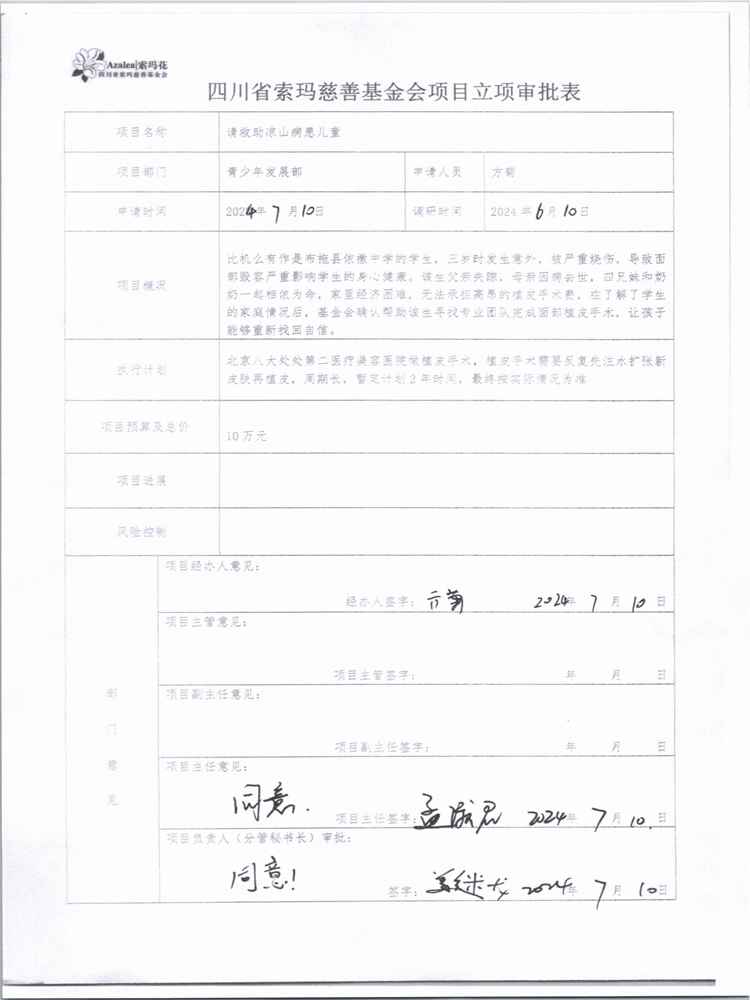 Azalea|索玛花
四川省索玛慈善基金会
四川省索玛慈善基金会项目立项审批表
项目名称 请救助凉山病患儿童
项目部门 青少年发展部 申请人员 方菊
申请时间 2024年7月10日 调研时间 2024年6月10日
项目概况
比机么有作是布拖县依撒中学的学生，三岁时发生意外，被严重烧伤，导致面
部毁容严重影响学生的身心健康。该生父亲失踪，母亲因病去世，四兄妹和奶
奶一起相依为命，家里经济困难，无法承担高昂的植皮手术费，在了解了学生
的家庭情况后，基金会确认帮助该生寻找专业团队完成面部植皮手术，让孩子
能够重新找回自信。
执行计划
北京八大处处第二医疗美容医院做植皮手术，植皮手术需要反复先注水扩张新
皮肤再植皮，周期长，暂定计划2年时间，最终按实际情况为准
项目预算及总价 10万元
项目进展
风险控制
部门意见
项目经办人意见：
经办人签字：方菊 2024年7月10日
项目主管意见：
项目主管签字： 年 月 日
项目副主任意见：
项目副主任签字： 年 月 日
项目主任意见：
同意.
项目主任签字：孟 2024年7月10.日
项目负责人（分管秘书长）审批：
同意!
签字： 2024年7月10日